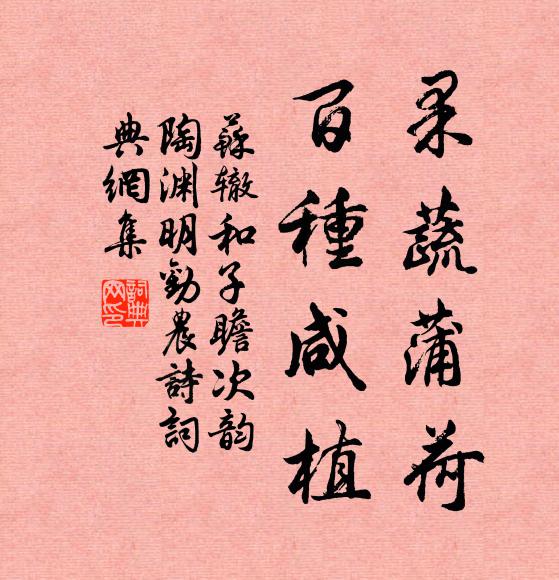 果蔬蒲荷
百種咸植
蘇轍和子瞻次韵
陶淵明勸農詩詞
典網集
詞典網印